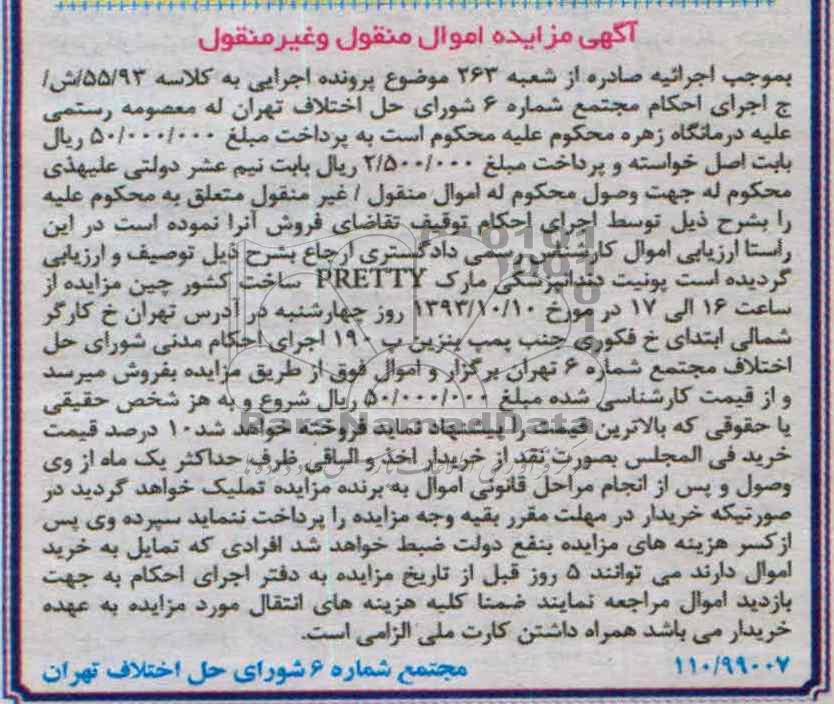 آگهی مزایده اموال منقول وغیرمنقول
بموجب اجرائیه صادره از شعبه ۲۶۳ موضوع پرونده اجرایی به کلاسه ۵۵/۹۳/ش/
ج اجرای احکام مجتمع شماره ۶ شورای حل اختلاف تهران له معصومه رستمی
علیه درمانگاه زهره محکوم علیه محکوم است به پرداخت مبلغ ۵۰/۰۰۰/۰۰۰ ریال
بابت اصل خواسته و پرداخت مبلغ ۲/۵۰۰/۰۰۰ ریال بابت نیم عشر دولتی علیهذی
محکوم له جهت وصول محکوم له اموال منقول / غیر منقول متعلق به محکوم علیه
را بشرح ذیل توسط اجرای احکام توقیف تقاضای فروش آنرا نموده است در این
راستا ارزیابی اموال کارشناس رسمی دادگستری ارجاع بشرح ذیل توصیف و ارزیابی
گردیده است یونیت دندانپزشکی مارک PRETTY ساخت کشور چین مزایده از
ساعت ۱۶ الی ۱۷ در مورخ ۱۳۹۳/۱۰/۱۰ روز چهارشنبه در آدرس تهران خ کارگر
شمالی ابتدای خ فکوری جنب پمپ بنزین پ ۱۹۰ اجرای احکام مدنی شورای حل
اختلاف مجتمع شماره ۶ تهران برگزار و اموال فوق از طریق مزایده بفروش میرسد
و از قیمت کارشناسی شده مبلغ ۵۰/۰۰۰/۰۰۰ ریال شروع و به هز شخص حقیقی
یا حقوقی که بالاترین قیمت را پیشنهاد نماید فروخته خواهد شد ۱۰ درصد قیمت
خرید فی المجلس بصورت نقد از خریدار اخذ و الباقی ظرف حداکثر یک ماه از وی
وصول و پس از انجام مراحل قانونی اموال به برنده مزایده تملیک خواهد گردید در
صورتیکه خریدار در مهلت مقرر بقیه وجه مزایده را پرداخت ننماید سپرده وی پس
ازکسر هزینه های مزایده بنفع دولت ضبط خواهد شد افرادی که تمایل به خرید
اموال دارند می توانند ۵ روز قبل از تاریخ مزایده به دفتر اجرای احکام به جهت
بازدید اموال مراجعه نمایند ضمنا کلیه هزینه های انتقال مورد مزایده به عهده
خریدار می باشد همراه داشتن کارت ملی الزامی است.
۱۱۰/۹۹۰۰۷ مجتمع شماره ۶ شورای حل اختلاف تهران
ParsNamadData